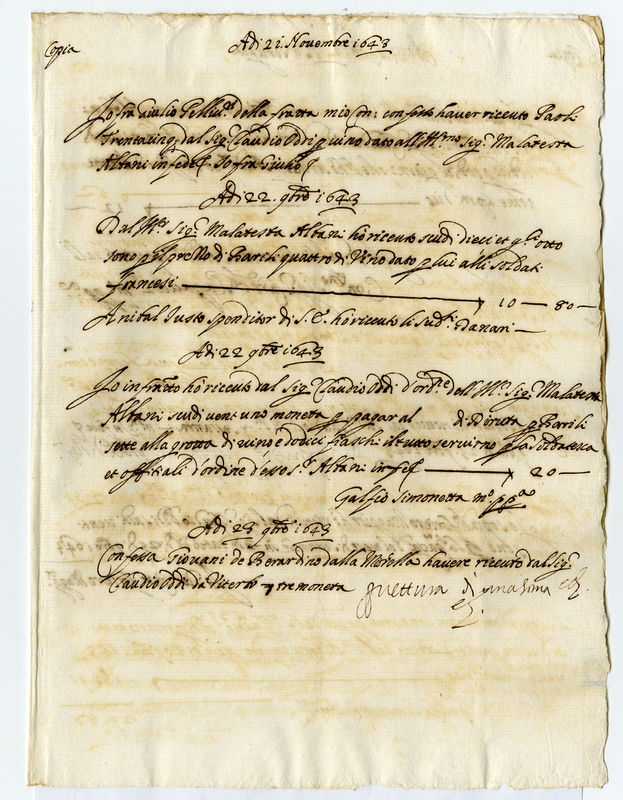 Copia
Adi 21. Novembre 1643
Io fra Giulio della fratta confesso haver riceuto Paoli
Trentacinq; dal Sig.r Claudio Oddi p vino dato all Ill.mo Sig.r Malatesta
Albani in fede Io fra Giulio
Adi 22. 9bre 1643
Dal M.r Sig.r Malatesta Albani hò riceuto scudi dieci et otto
sono p il prezzo di Barili quattro di Vino dato p lui alli soldati
francesi 10 80
Anibal Justo spenditor di S. E. hò riceuto li sud.ti Danari
Adi 22 9bre 1643
Io infratto hò riceuto dal Sig.r Claudio Oddi d'ord.ne dell M.r Sig.r Malatesta
Albani scudi vent'uno moneta p pagar al di Deruta p Barili
sette alla grotta di vino e dodici fiaschi p la soldatesca
et offitiali d'ordine d'esso S.r Albani in fe 20
Simonetta m.o pp.a
Adi 23 9bre 1643
Confessa Giovani de Berardino dalla Morella havere riceuto dal Sig.r
Claudio Oddi da Viterbo tre moneta p vettura di una soma